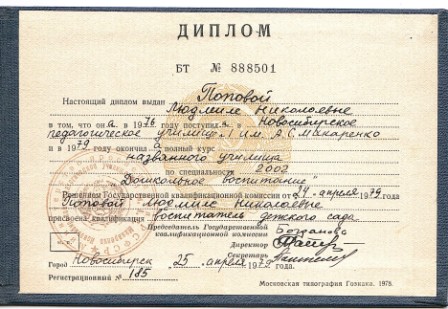 ДИПЛОМ
БТ № 888501
Настоящий диплом выдан Поповой
Людмиле Николаевне
в том, что она в 1976 году поступила в Новосибирское
педагогическое училище №1 им. А.С. Макаренко
и в 1979 году окончила полный курс
названного училища
по специальности 2002
"Дошкольное воспитание"
Решением Государственной квалификационной комиссии от 24 апреля 1979 г.
Поповой Людмиле Николаевне
присвоена квалификация воспитатель детского сада.
Председатель Государственной
квалификационной комиссии Богданова
Директор
Секретарь
Город Новосибирск 25 апреля 1979 года.
Регистрационный № 185
Московская типография Гознака. 1978.